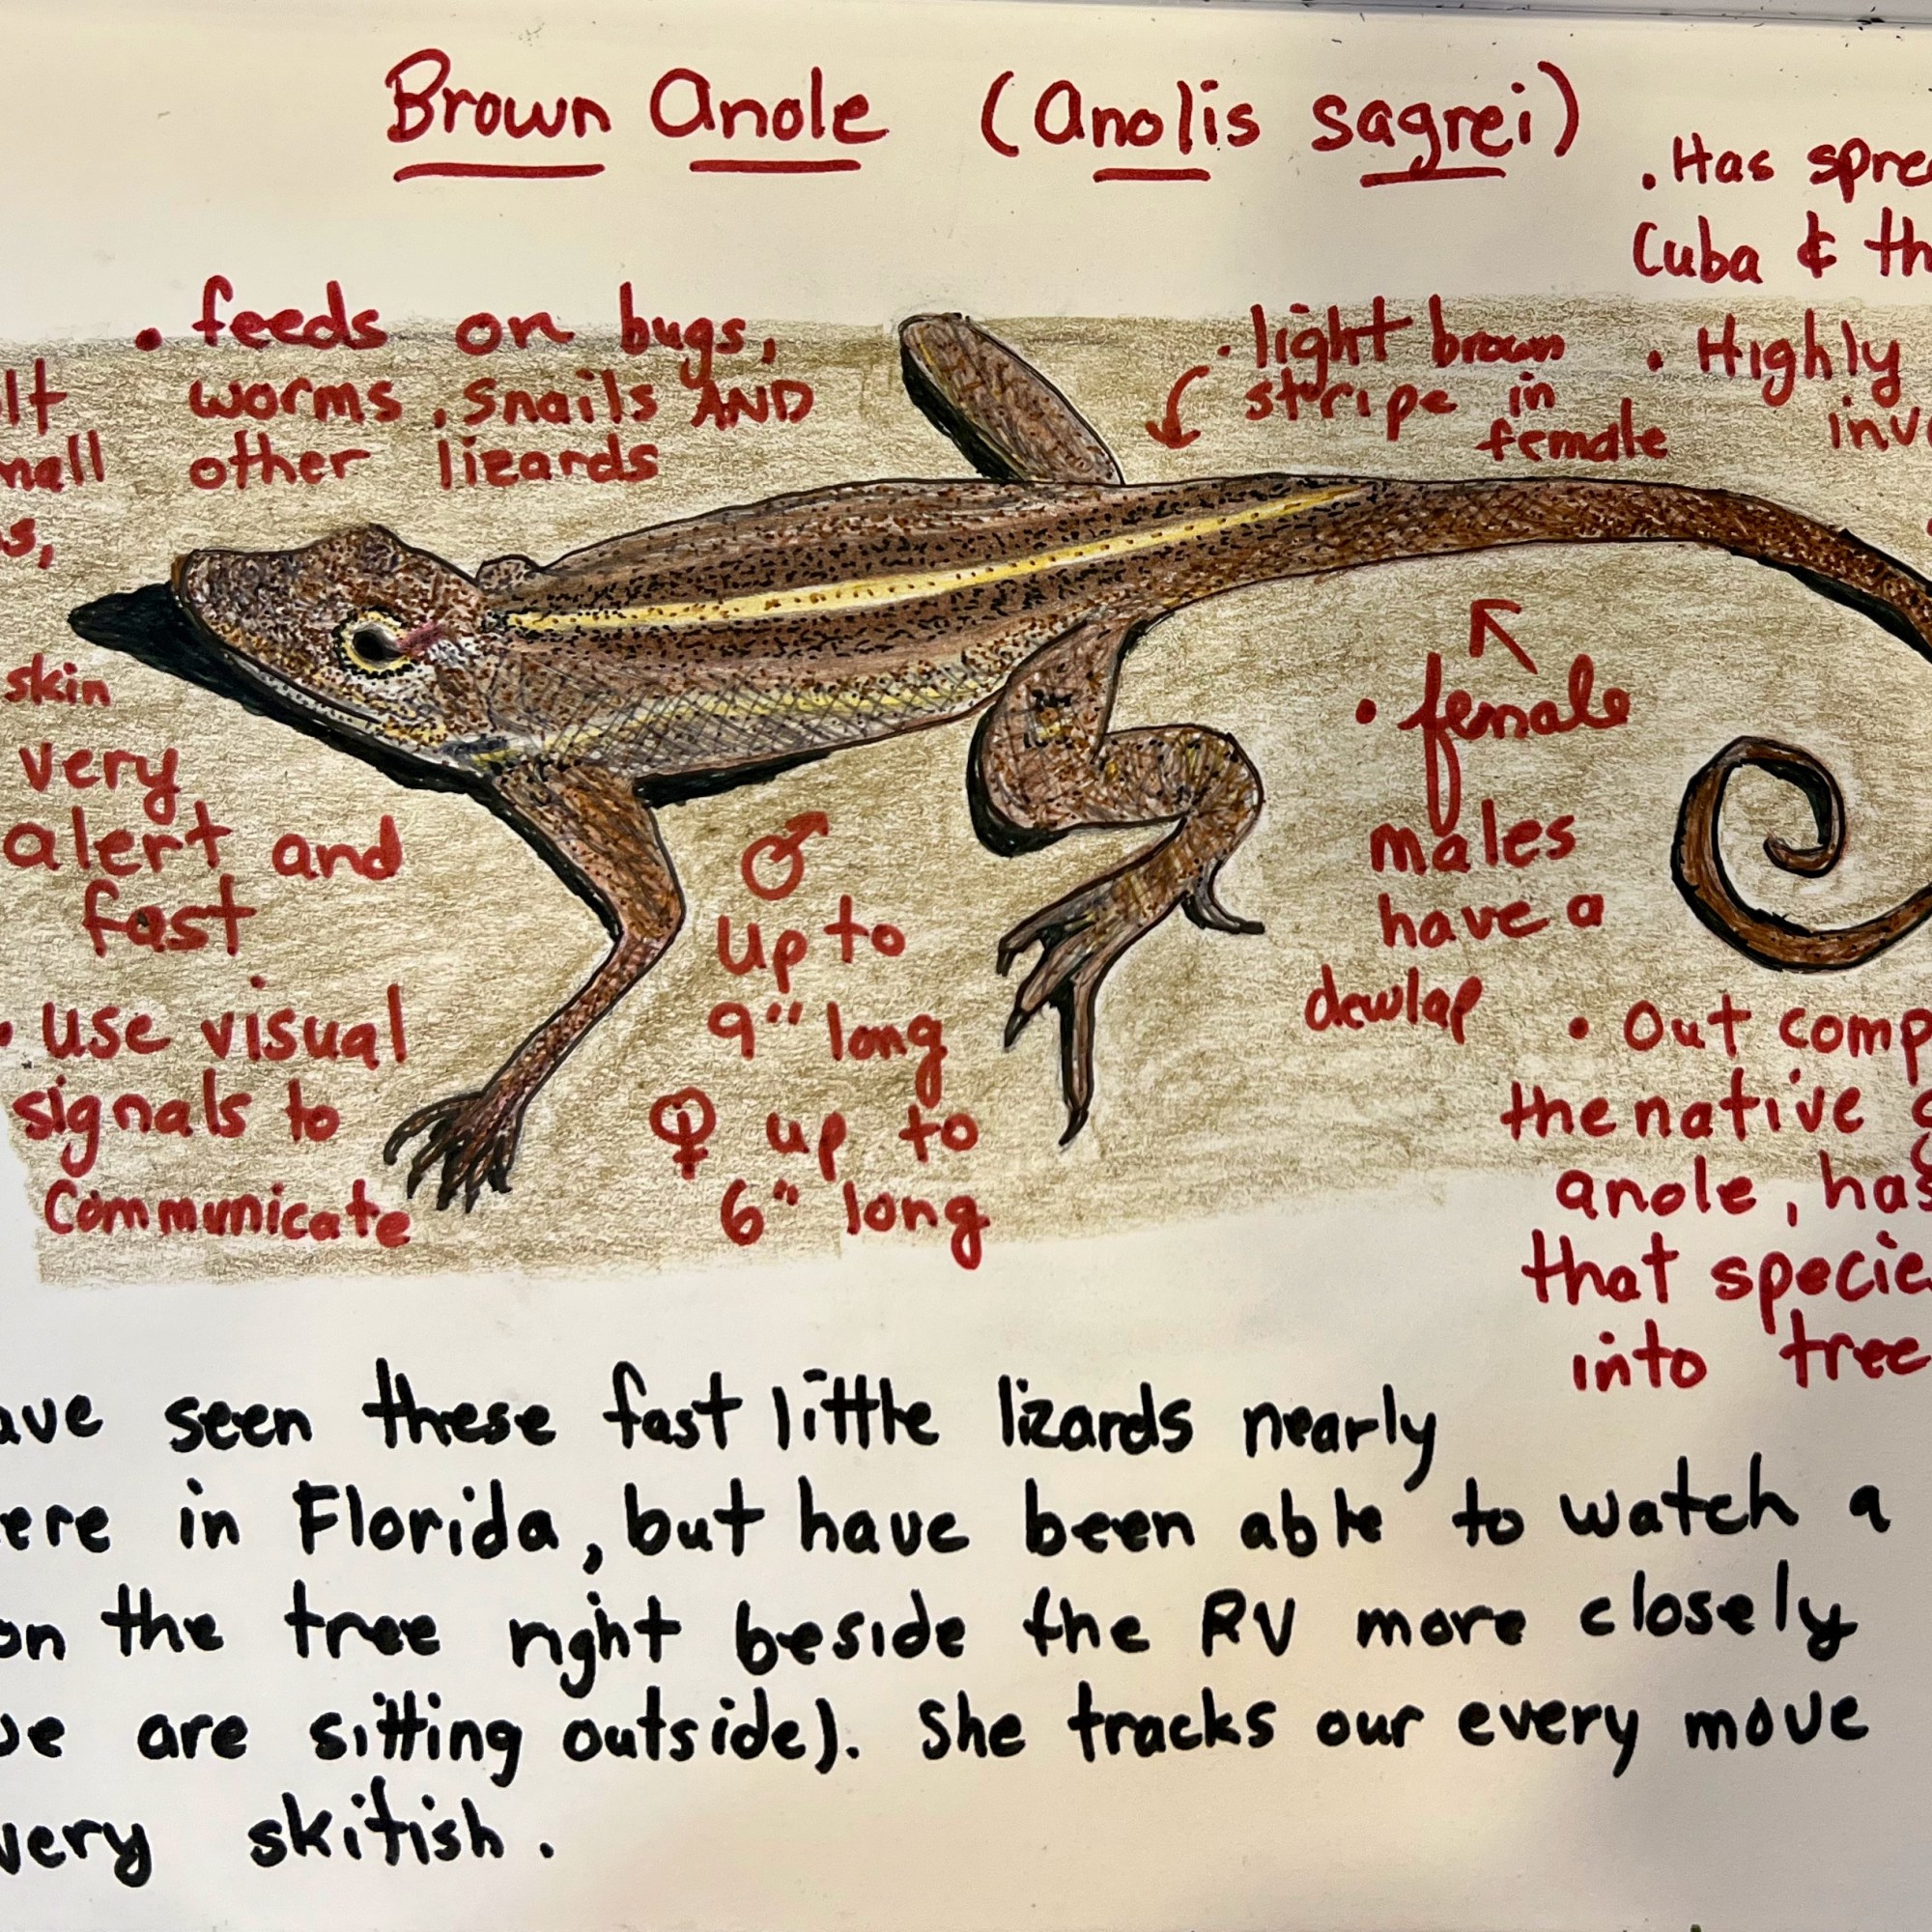 Brown Anole (Anolis sagrei)
. Has spre
Cuba & th
• feeds on bugs,
worms, snails AND
other lizards
lt
mall
s,
skin
very
alert and
fast
• use visual
signals to
communicate
♂
up to
9" long
♀ up to
6" long
• light brown
stripe in
female
• Highly
inv
• female
males
have a
dewlap
• Out comp
the native g
anole, has
that specie
into tree
ave seen these fast little lizards nearly
ere in Florida, but have been able to watch a
on the tree right beside the RV more closely
we are sitting outside). She tracks our every move
very skitish.